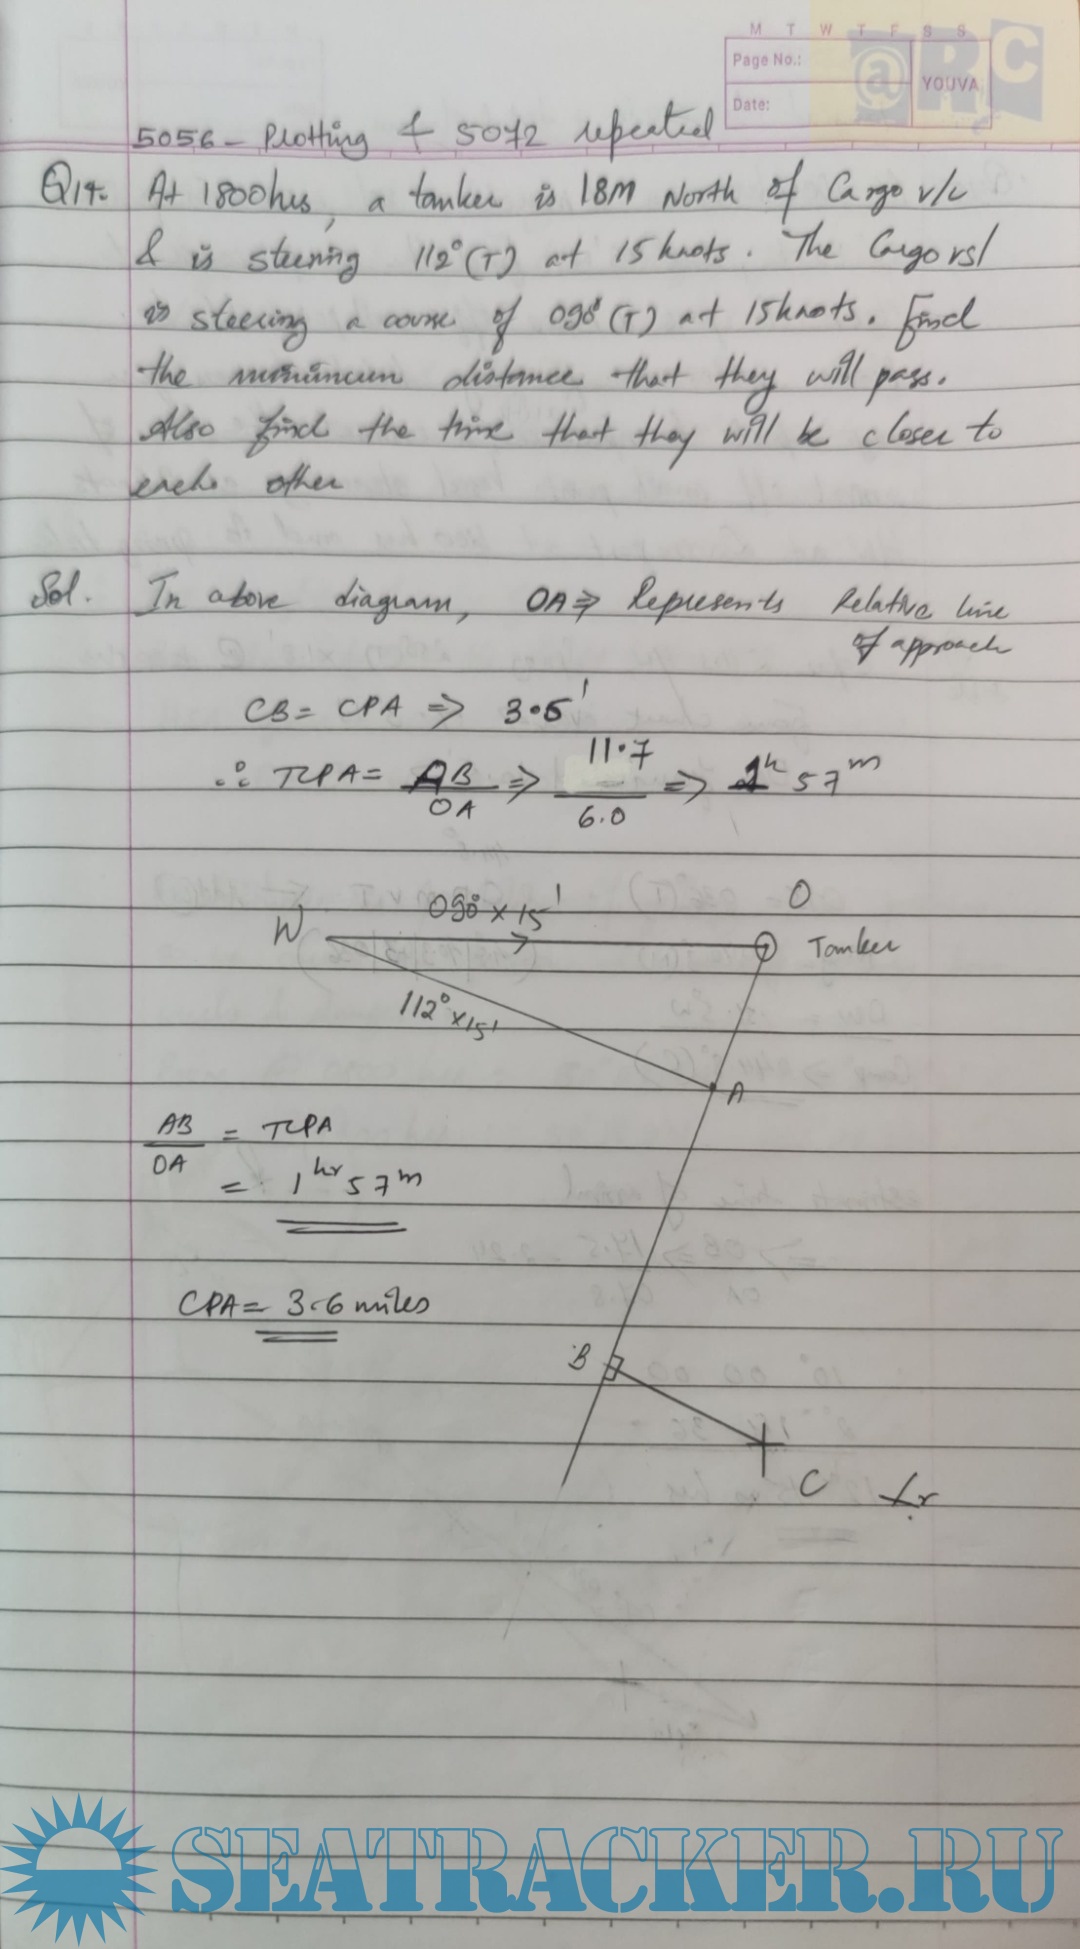 M T W T F S S
Page No.:
Date:
YOUVA
@RC
5056 - Plotting & 5072 repeated
Q14. At 1800hrs, a tanker is 18M North of Cargo v/l
& is steering 112°(T) at 15 knots. The Cargo vsl
is steering a course of 090°(T) at 15knots. Find
the minimum distance that they will pass.
Also find the time that they will be closer to
each other
Sol. In above diagram, OA ⇒ Represents Relative line
of approach
CB = CPA ⇒ 3.6'
∴ TCPA = AB/OA ⇒ 11.7/6.0 ⇒ 1h 57m
W 090° x 15' O
Tanker
112° x 15'
A
AB/OA = TCPA
= 1hr 57m
CPA = 3.6 miles
B
C
SEATRACKER.RU